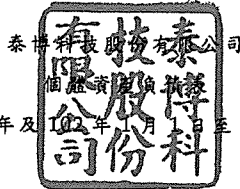 泰博科技股份有限公司
個體資產負債表
年及 102 年 月 1 日至
泰博科
技股份
有限公司